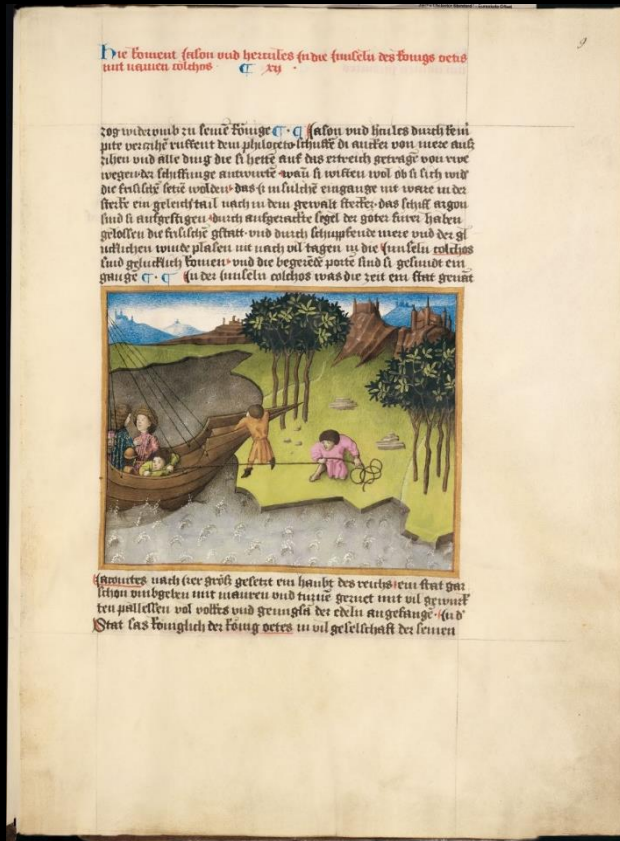 9
Hie koment Jason vnd hercules in die Jnnseln des konigs oetis
mit namen colchos ¶ xij ·
zog widervmb zu seinē kōnige ¶ · ¶ Jason vnd
pite verzihē ruffent dem philocteto schuffē di ancker von mere auf
zihen vnd alle ding die si hettē auf das ertreich getragē von
wegen der schiffunge antwurtē wan si wisten wol ob si sich wid'
die frisischē setzē wolden das si in sulchē eingange nit warē in der
sterke ein geleich tail nach in dem gewalt sterker das schiff argon
sind si aufgestigen durch aufgerackte segel der goter furer haben
gelossen die frisischē gstatt vnd durch schupfende mere vnd der gl
ucklichen winde plasen nit nach vil tagen in die Jnnseln colchos
sind gelucklich komen vnd die begerētē portē sind si gesundt ein
gangē ¶ · ¶ Jn der Jnnseln colchos was die zeit ein stat genāt
Jaconites nach irer größ gesetzt ein haubt des reichs ein stat gar
schon vmbgeben mit mauren vnd turnē gernet mit vil gewurk
ten pallessen vol volkes vnd der edeln angefangē Jn d'
Stat sas koniglich der kōnig oetes in vil geselschaft der seinen